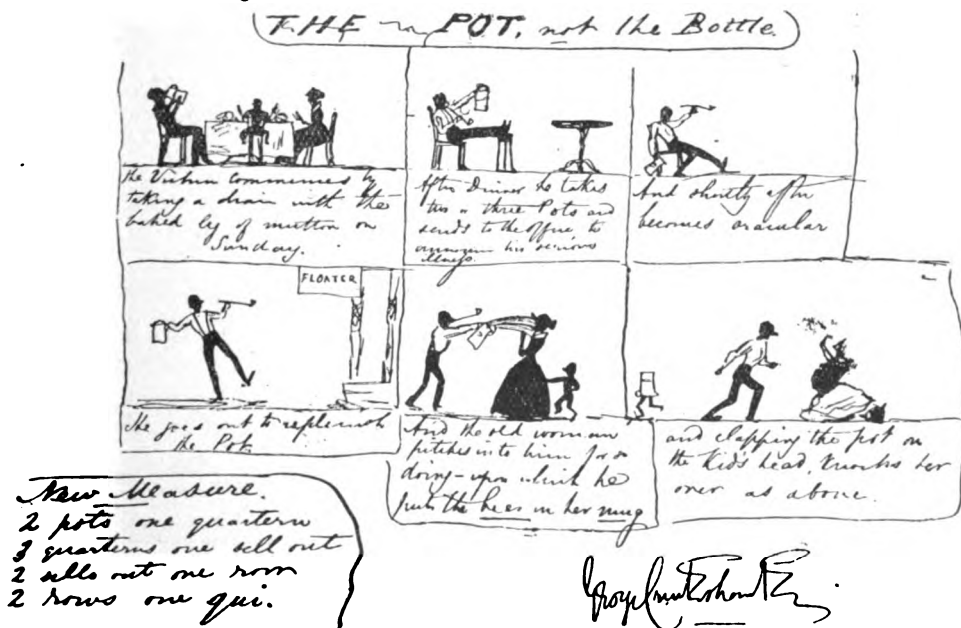 THE POT, not the Bottle.
The Victim commences by
taking a drain with the
baked leg of mutton on
Sunday.
After Dinner he takes
two or three Pots and
sends to the office to
announce his serious
illness.
And shortly after
becomes oracular
FLOATER
He goes out to replenish
the Pot.
And the old woman
pitches into him for so
doing - upon which he
puts the beer in her mug
and clapping the pot on
the Kid's head, Knocks her
over as above.
New Measure.
2 pots one quartern
3 quarterns one sell out
2 sells out one row
2 rows one qui.